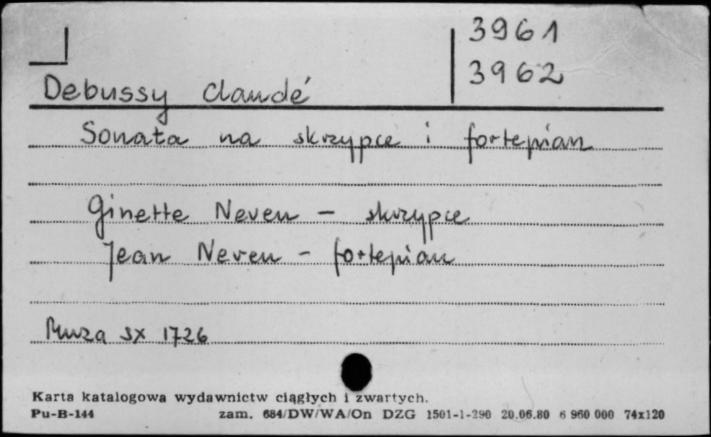 3961
3962
Debussy Claudé
Sonata na skrzypce i fortepian
Ginette Neveu – skrzypce
Jean Neveu – fortepian
Muza SX 1726
Karta katalogowa wydawnictw ciągłych i zwartych.
Pu-B-144 zam. 684/DW/WA/On DZG 1501-1-290 20.06.80 6 960 000 74x120